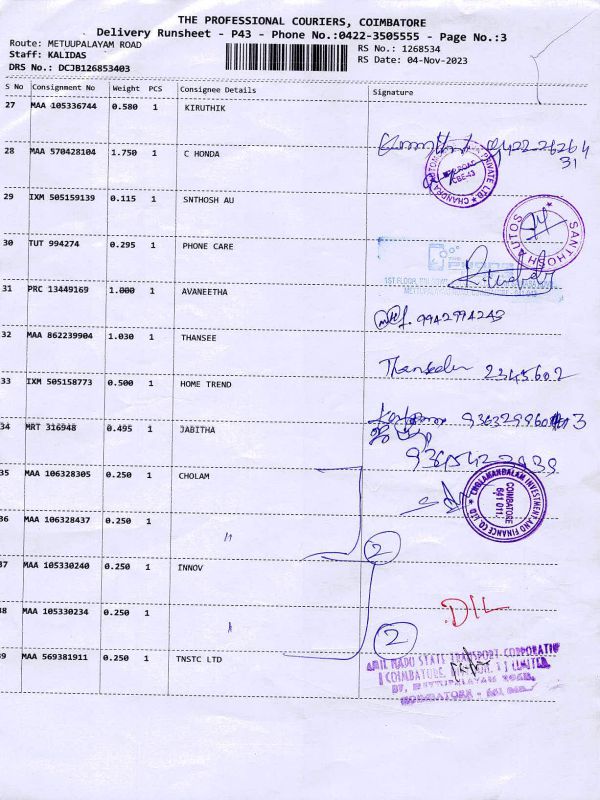 THE PROFESSIONAL COURIERS, COIMBATORE
Delivery Runsheet - P43 - Phone No.:0422-3505555 - Page No.:3
Route: METUUPALAYAM ROAD
RS No.: 1268534
Staff: KALIDAS
RS Date: 04-Nov-2023
DRS No.: DCJB126853403
S No Consignment No Weight PCS Consignee Details Signature
27 MAA 105336744 0.580 1 KIRUTHIK
28 MAA 570428104 1.750 1 C HONDA
29 IXM 505159139 0.115 1 SNTHOSH AU
SANTHOSH AUTOS
30 TUT 994274 0.295 1 PHONE CARE
31 PRC 13449169 1.000 1 AVANEETHA
9942994243
32 MAA 862239904 1.030 1 THANSEE
33 IXM 505158773 0.500 1 HOME TREND
34 MRT 316948 0.495 1 JABITHA
35 MAA 106328305 0.250 1 CHOLAM
CHOLAMANDALAM INVESTMENT AND FINANCE CO. LTD
COIMBATORE
641 011
36 MAA 106328437 0.250 1 "
2
37 MAA 105330240 0.250 1 INNOV
38 MAA 105330234 0.250 1 "
2
39 MAA 569381911 0.250 1 TNSTC LTD
TAMIL NADU STATE TRANSPORT CORPORATION